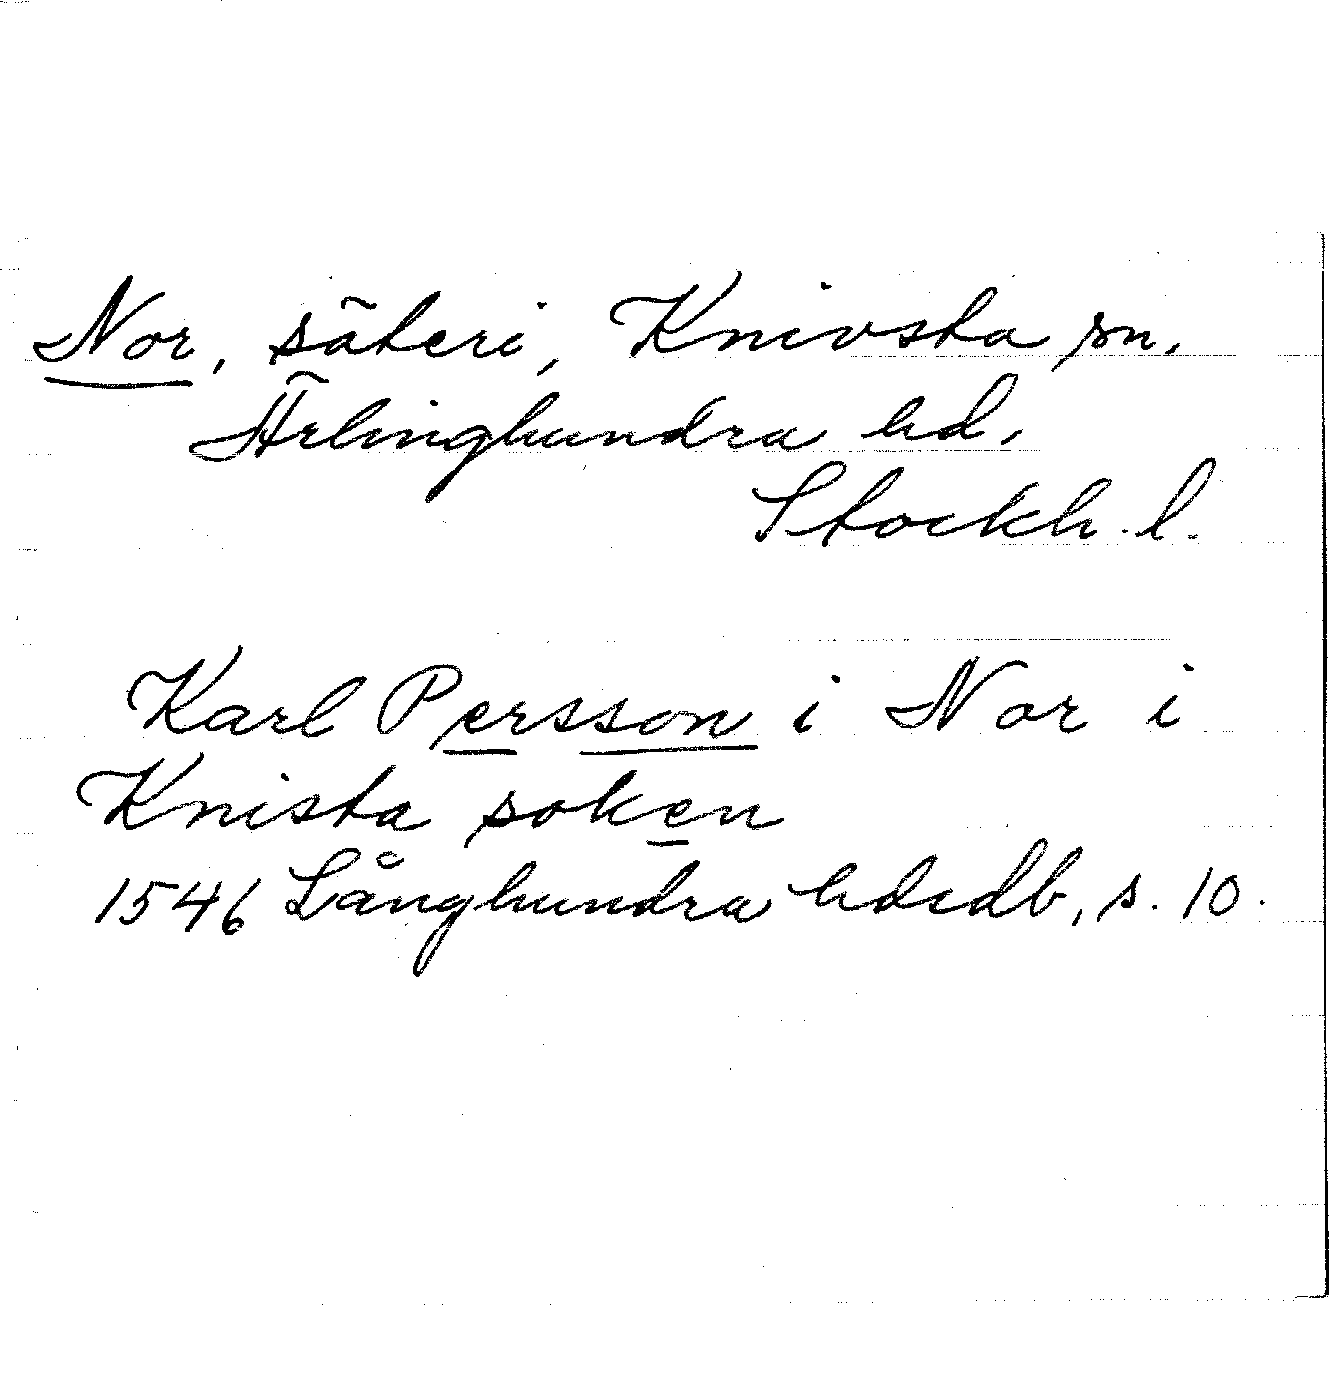 Nor, säteri, Knivsta sn.
Ärlinghundra hd.
Stockh. l.
Karl Persson i Nor i
Knista soken
1546 Långhundra hdsdb, s. 10.